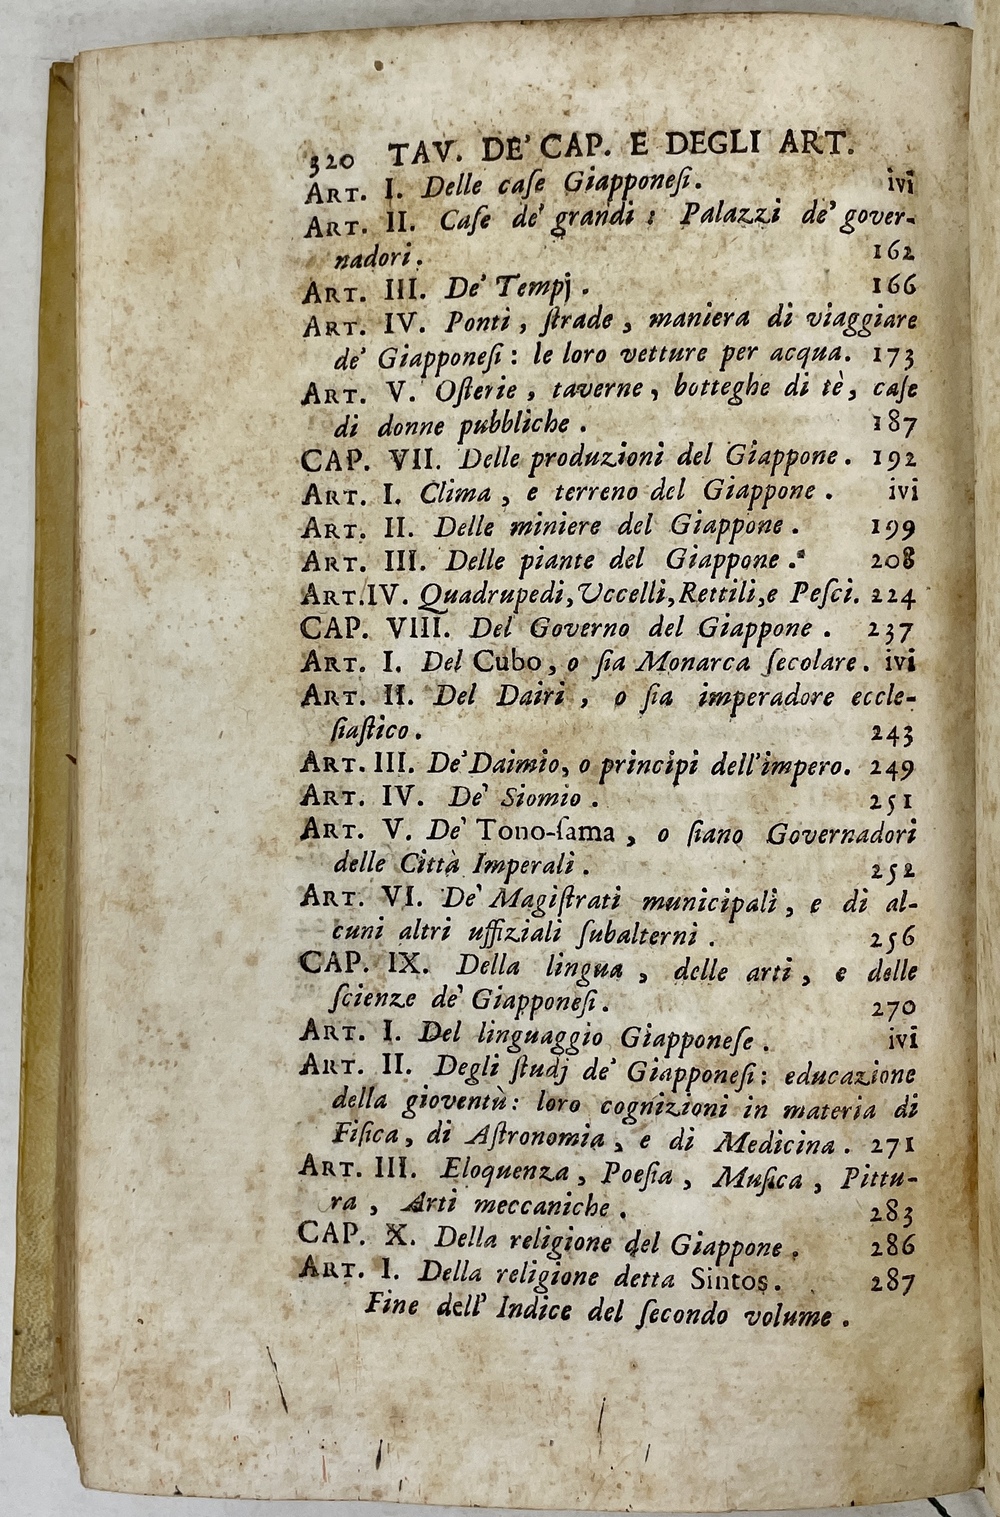 320 TAV. DE' CAP. E DEGLI ART.
ART. I. Delle caſe Giapponeſi. ivi
ART. II. Caſe de' grandi: Palazzi de' gover-
nadori. 162
ART. III. De' Tempj. 166
ART. IV. Ponti, ſtrade, maniera di viaggiare
de' Giapponeſi: le loro vetture per acqua. 173
ART. V. Oſterie, taverne, botteghe di tè, caſe
di donne pubbliche. 187
CAP. VII. Delle produzioni del Giappone. 192
ART. I. Clima, e terreno del Giappone. ivi
ART. II. Delle miniere del Giappone. 199
ART. III. Delle piante del Giappone. 208
ART. IV. Quadrupedi, Uccelli, Rettili, e Peſci. 224
CAP. VIII. Del Governo del Giappone. 237
ART. I. Del Cubo, o ſia Monarca ſecolare. ivi
ART. II. Del Dairi, o ſia imperadore eccle-
ſiaſtico. 243
ART. III. De' Daimio, o principi dell'impero. 249
ART. IV. De' Siomio. 251
ART. V. De' Tono-ſama, o ſiano Governadori
delle Città Imperali. 252
ART. VI. De' Magiſtrati municipali, e di al-
cuni altri uffiziali ſubalterni. 256
CAP. IX. Della lingua, delle arti, e delle
ſcienze de' Giapponeſi. 270
ART. I. Del linguaggio Giapponeſe. ivi
ART. II. Degli ſtudj de' Giapponeſi: educazione
della gioventù: loro cognizioni in materia di
Fiſica, di Aſtronomia, e di Medicina. 271
ART. III. Eloquenza, Poeſia, Muſica, Pittu-
ra, Arti meccaniche. 283
CAP. X. Della religione del Giappone. 286
ART. I. Della religione detta Sintos. 287
Fine dell' Indice del ſecondo volume.